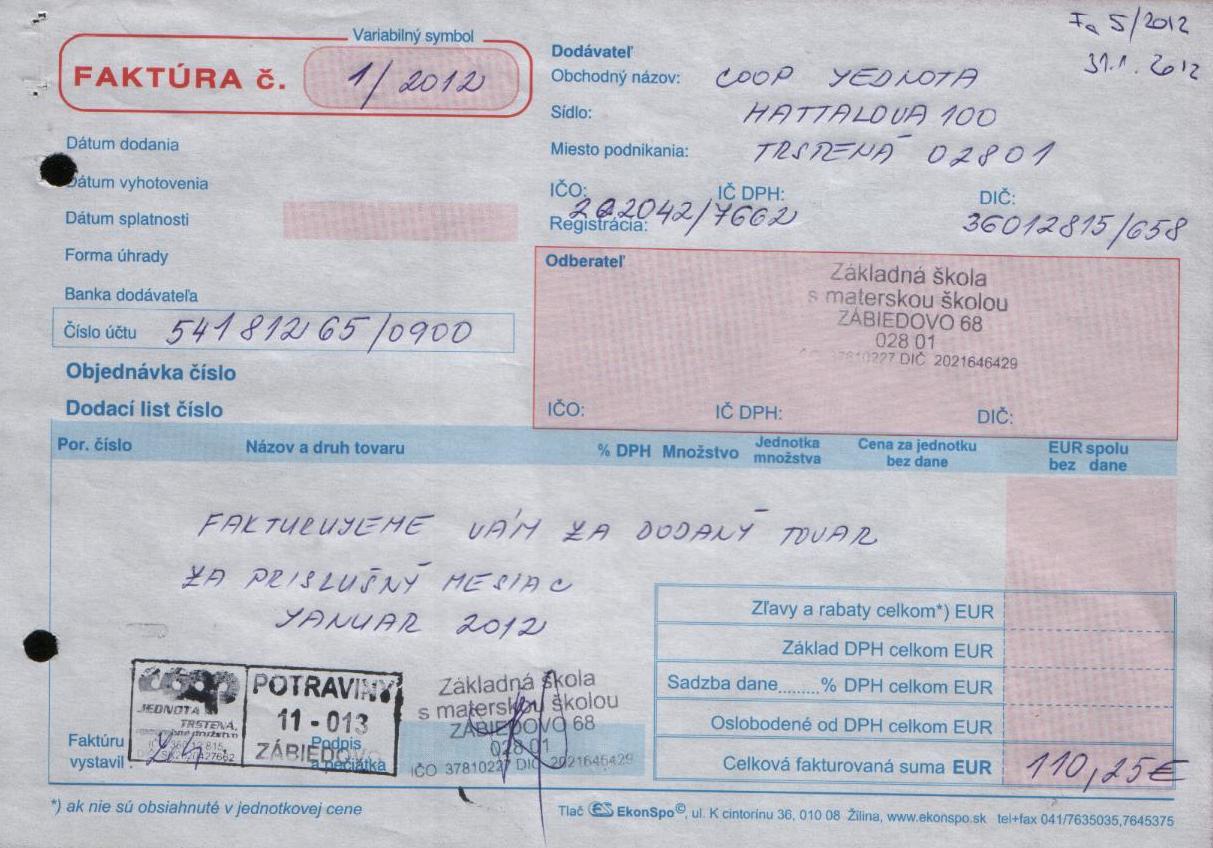 Fa 5/2012
31.1. 2012
Variabilný symbol
FAKTÚRA č. 1/2012
Dátum dodania
Dátum vyhotovenia
Dátum splatnosti
Forma úhrady
Banka dodávateľa
Číslo účtu 541 812 65/0900
Objednávka číslo
Dodací list číslo
Dodávateľ
Obchodný názov: COOP JEDNOTA
Sídlo: HATTALOVA 100
Miesto podnikania: TRSTENÁ 02801
IČO: IČ DPH: DIČ:
Registrácia: 202042/7662 36012815/658
Odberateľ
Základná škola
s materskou školou
ZÁBIEDOVO 68
028 01
37810227 DIČ 2021646429
IČO: IČ DPH: DIČ:
Por. číslo Názov a druh tovaru % DPH Množstvo Jednotka množstva Cena za jednotku bez dane EUR spolu bez dane
FAKTURUJEME VÁM ZA DODANÝ TOVAR
ZA PRISLUŠNÝ MESIAC
JANUAR 2012
Zľavy a rabaty celkom*) EUR
Základ DPH celkom EUR
Sadzba dane.......% DPH celkom EUR
Oslobodené od DPH celkom EUR
Celková fakturovaná suma EUR 110,25€
coop
JEDNOTA
TRSTENÁ,
POTRAVINY
11 - 013
ZÁBIEDOVO
Faktúru
vystavil
Podpis
a pečiatka
Základná škola
s materskou školou
ZÁBIEDOVO 68
028 01
IČO 37810227 DIČ 2021646429
*) ak nie sú obsiahnuté v jednotkovej cene
Tlač ES EkonSpo©, ul. K cintorínu 36, 010 08 Žilina, www.ekonspo.sk tel+fax 041/7635035,7645375